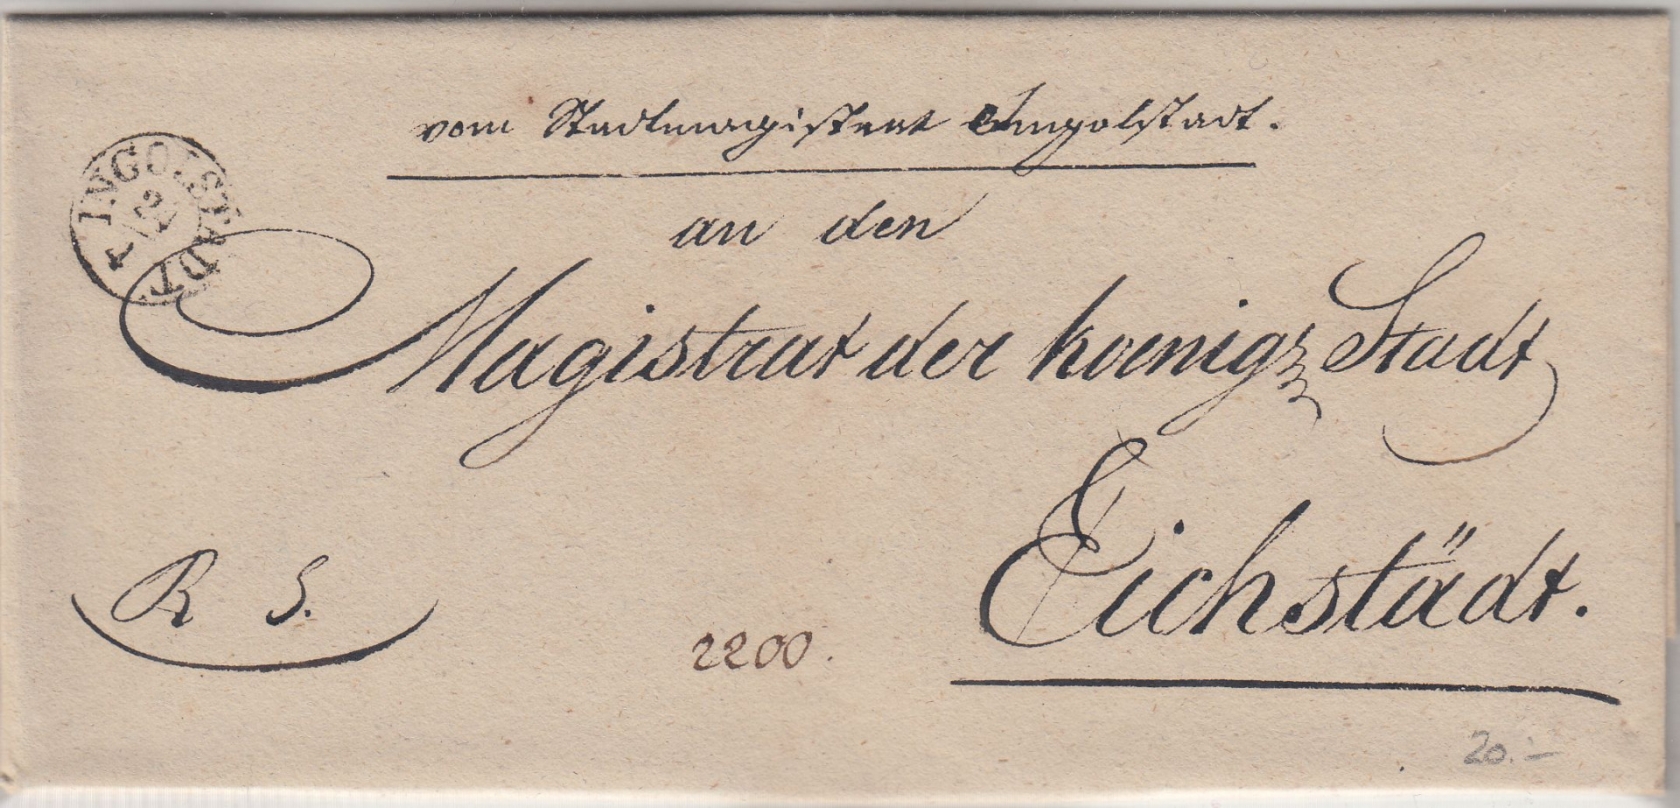 vom Stadtmagistrat Ingolstadt.
INGOLSTADT
an den
Magistrat der koenig Stadt
Eichstädt.
R S.
2200.
20.–